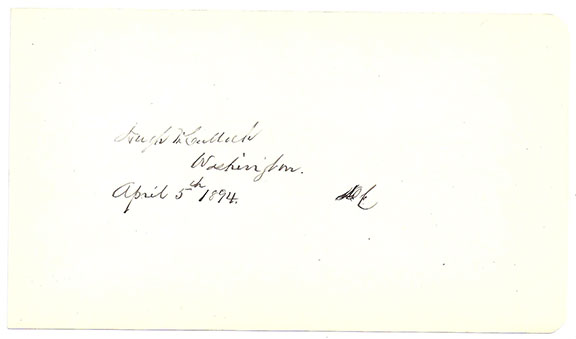 Hugh McCulloch
Washington.
April 5th 1894.